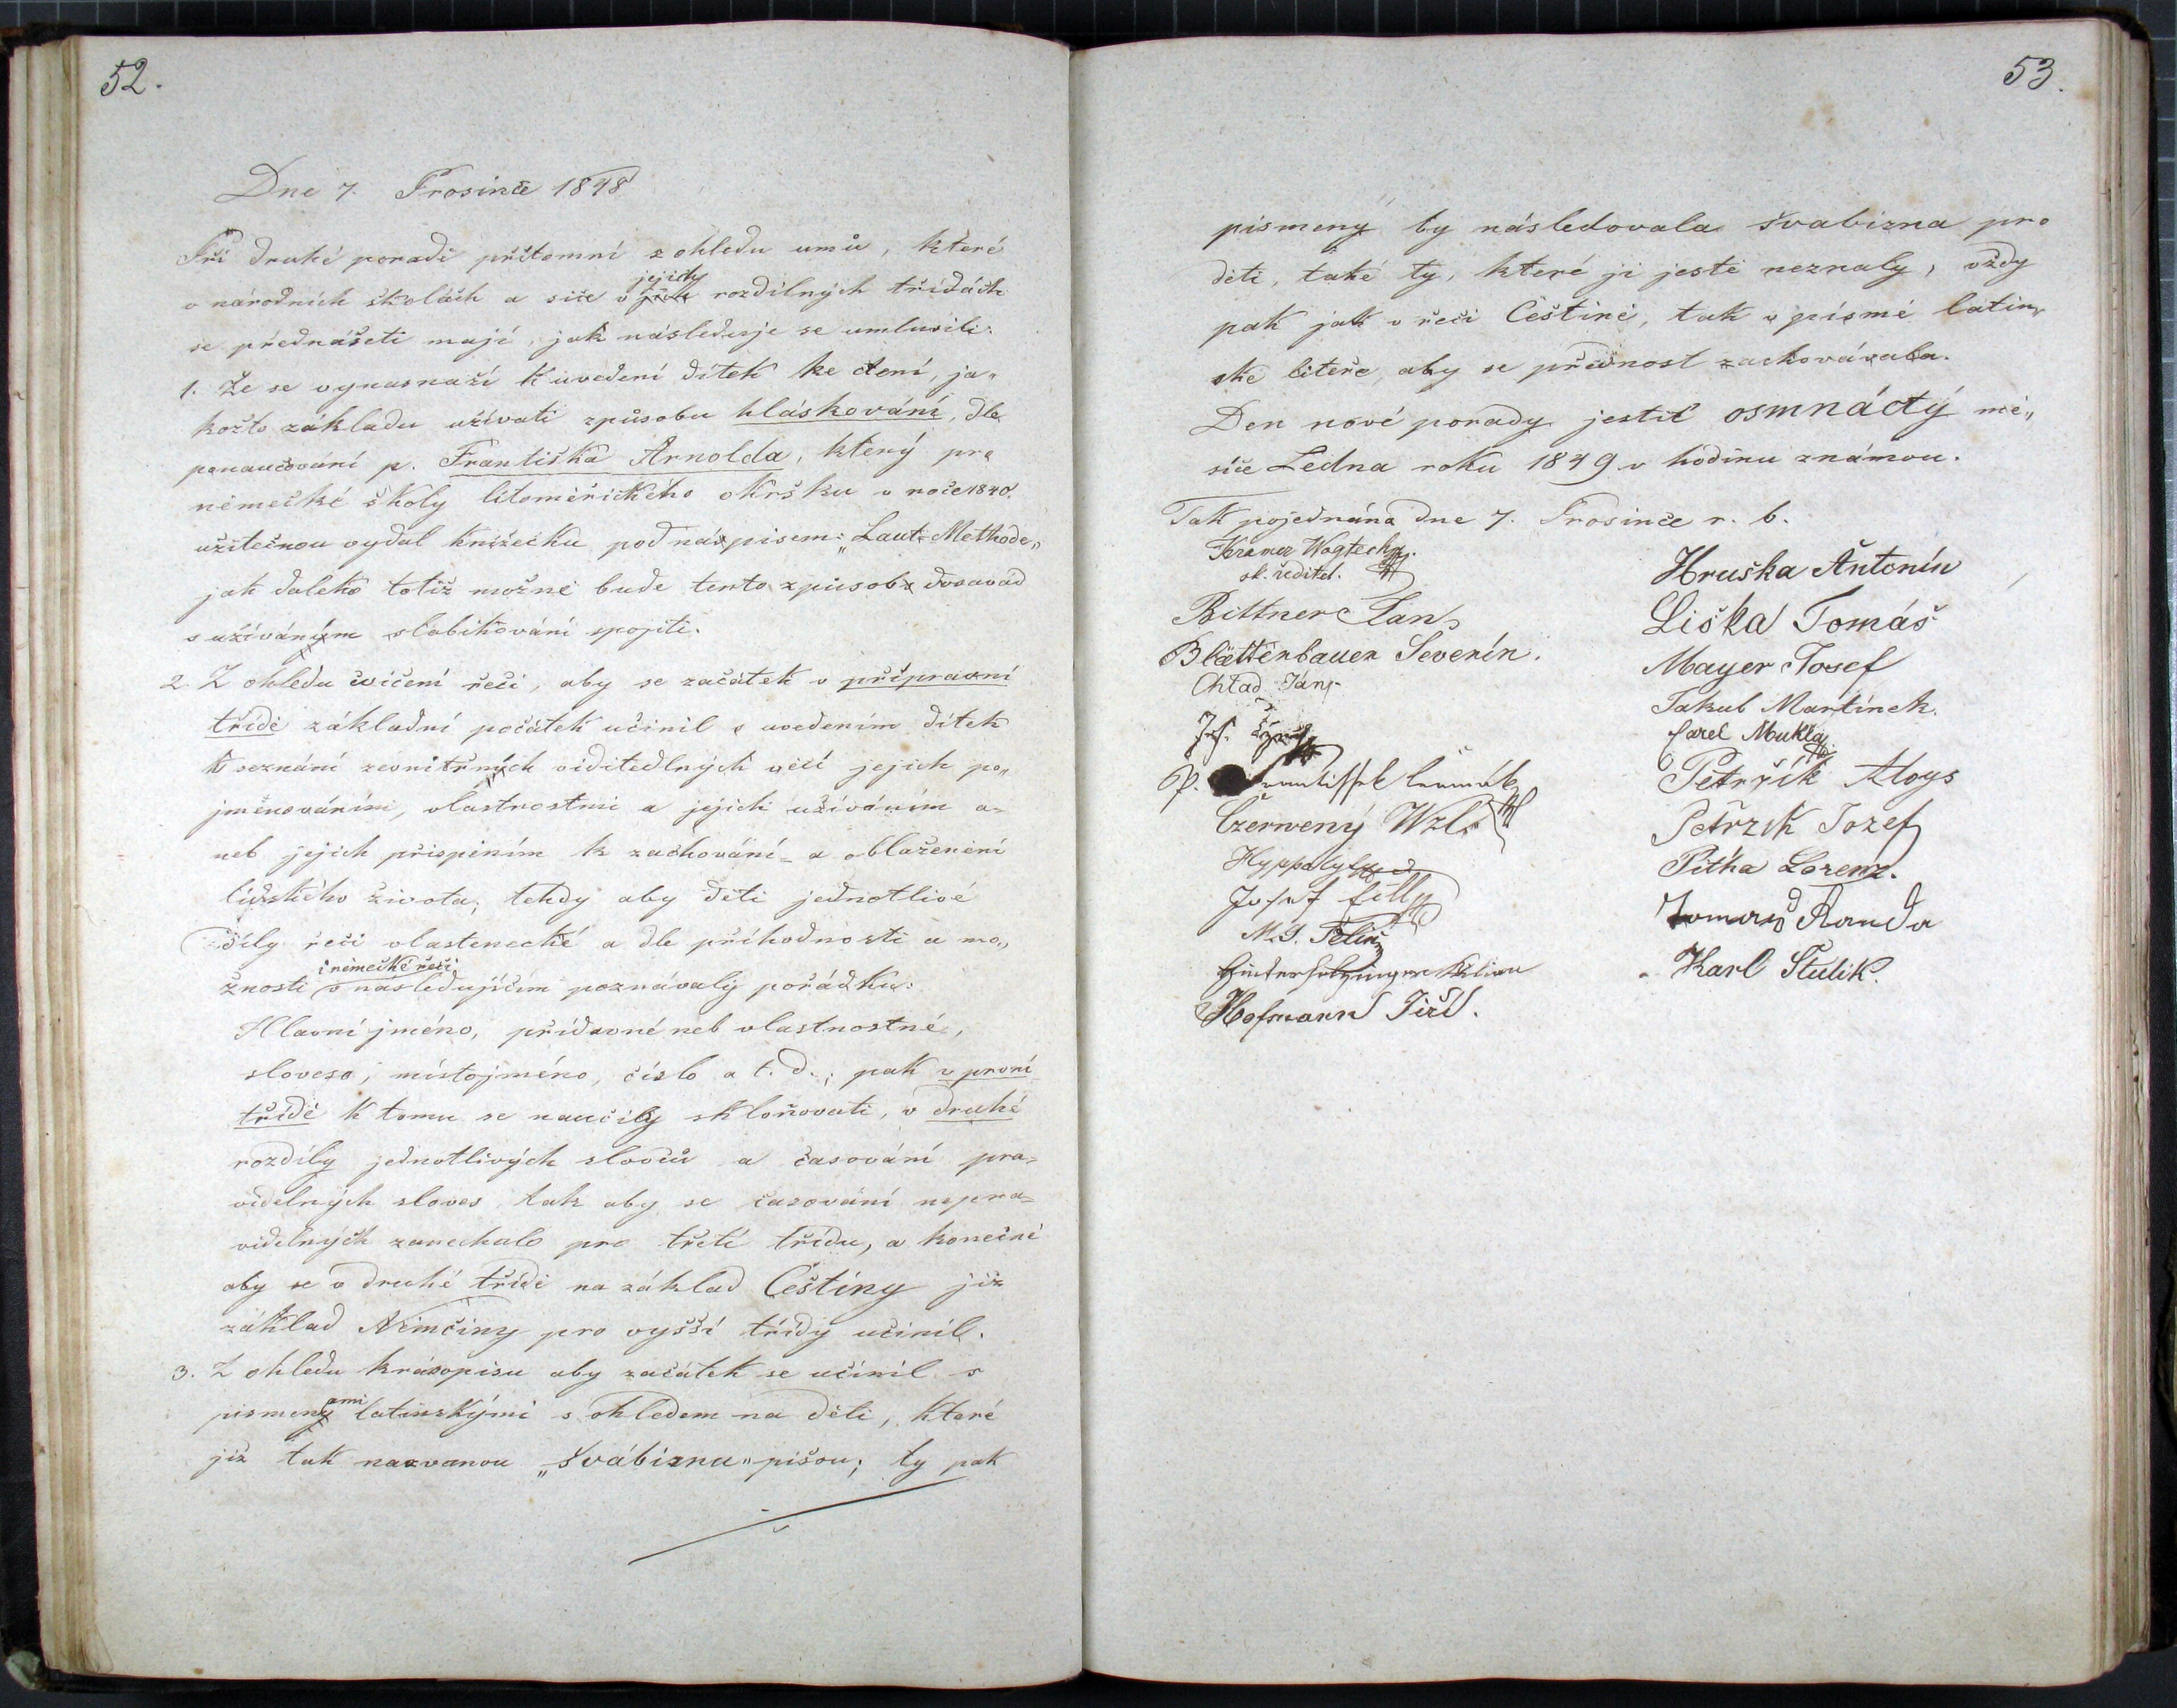 52.
Dne 7. Prosince 1848
Při druhé poradě přítomní z ohledu umů, které
v národních školách a sice v jejichž rozdílných třídách
se přednášeti mají, jak následuje se umluvili:
1. Že se vynasnaží k uvedení dítek ke čtení, ja„
kožto základu užívati způsobu hláskování, dle
ponaučování p. Františka Arnolda, který pro
německé školy litoměřického okršku v roce 1840.
užitečnou vydal knížečku pod nápisem: „Laut-Methode„
jak daleko totiž možné bude tento způsob s dosavád
s užíváným slabikování spojiti.
2. Z ohledu cvičení řeči, aby se začátek v přípravní
třídě základní počátek učinil s uvedením dítek
k seznání zevnitřních viditedlných věcí jejich po„
jmenováními, vlastnostmi a jejich užíváním a=
neb jejich přispěním k zachování= a oblažení
lidského života, tehdy aby děti jednotlivé
díly řeči vlastenecké a dle příhodnosti a mo„
i německé řeči
žnosti v následujícím poznávaly pořádku:
Hlavní jméno, přídavné neb vlastnostné,
sloveso, místojméno, číslo a t. d.; pak v první
třídě k tomu se naučily skloňovati, v druhé
rozdíly jednotlivých slovců a časování pra=
videlných sloves, tak aby se časování nepra=
videlných zanechalo pro třetí třídu, a konečně
aby se v druhé třídě na základ Češtiny již
základ Němčiny pro vyšší třídy učinil.
3. Z ohledu krásopisu aby začátek se učinil s
písmenami latinskými s ohledem na děti, které
již tak nazvanou „švábiznu„ píšou; ty pak
53.
písmeny by následovala švabizna pro
děti, také ty, které ji jestě neznaly, vždy
pak jak v řeči Češtině, tak v písmě latin„
ské liteře, aby se přednost zachovávala.
Den nové porady jestiť osmnáctý mě„
síce Ledna roku 1849 v hodinu známou.
Tak pojednáno dne 7. Prosince r. b.
Kramer Wogtech
sk. ředitel.
Bittner Jan
Blättenbauer Severín.
Chlad Jan
Jos.
P.
Czerwený Wzl.
Hyppolyt
Josef Filly
M. J. Pelíř
Kilian
Hofmann Jiří.
Hruška Antonín
Liška Tomáš
Mayer Josef
Jakub Martínek.
Carel Mukla
Petržík Aloys
Petrzik Jozef
Pitha Lorenz.
Tomas Randa
Karl Stulik.